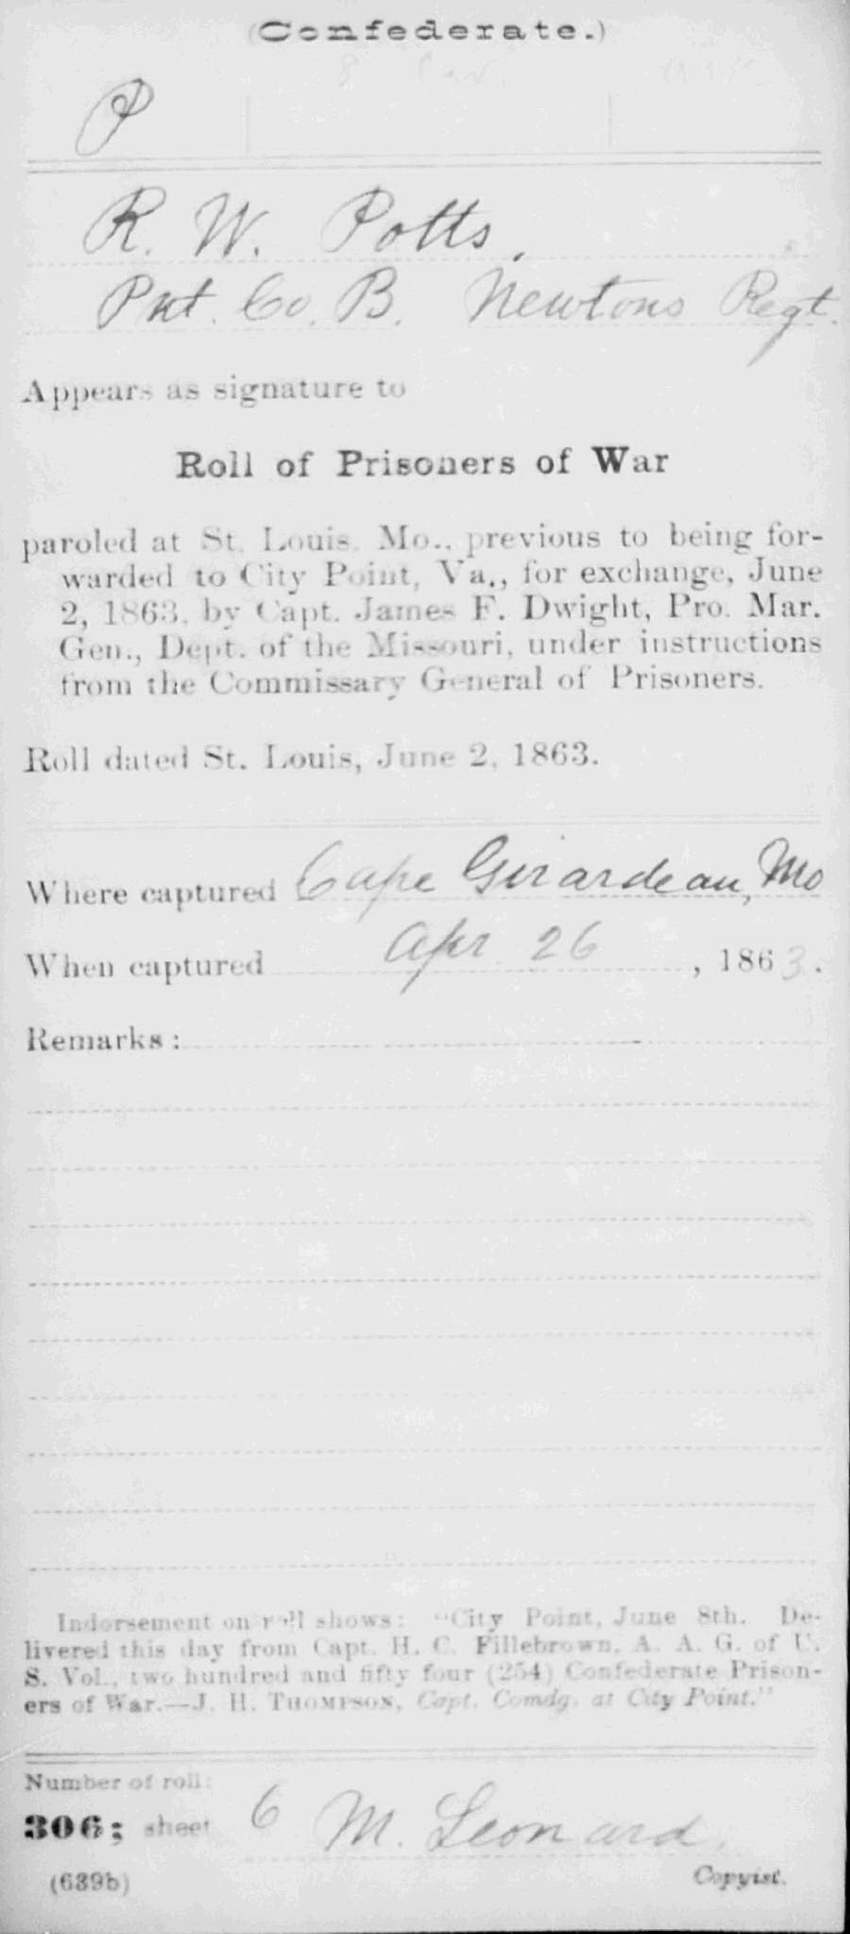 (Confederate.)
P
R. W. Potts,
Pvt. Co. B. Newtons Regt.
Appears as signature to
Roll of Prisoners of War
paroled at St. Louis, Mo., previous to being for-
warded to City Point, Va., for exchange, June
2, 1863, by Capt. James F. Dwight, Pro. Mar.
Gen., Dept. of the Missouri, under instructions
from the Commissary General of Prisoners.
Roll dated St. Louis, June 2, 1863.
Where captured Cape Girardeau, Mo
When captured Apr 26, 1863.
Remarks:
Indorsement on roll shows: "City Point, June 8th. De-
livered this day from Capt. H. C. Fillebrown, A. A. G. of U.
S. Vol., two hundred and fifty four (254) Confederate Prison-
ers of War.—J. H. THOMPSON, Capt. Comdg. at City Point."
Number of roll:
306; sheet 6 M. Leonard,
(639b) Copyist.